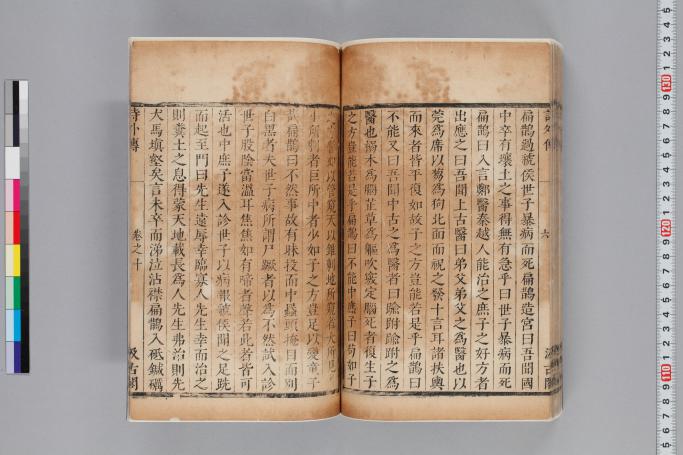 扁鵲過虢侯世子暴病而死扁鵲造宮曰吾聞國
中卒有壤土之事得無有急乎曰世子暴病而死
扁鵲曰入言鄭醫秦越人能治之庶子之好方者
出應之曰吾聞上古醫曰弟父弟父之爲醫也以
莞爲席以芻爲狗北面而視之發十言耳諸扶輿
而來者皆平復如故子之方豈能若是乎扁鵲曰
不能又曰吾聞中古之爲醫者曰踰跗踰跗之爲
醫也搦木爲腦芷草爲軀吹竅定腦死者復生子
之方豈能若是乎扁鵲曰不能中庶子曰苟如子
如以管窺天以錐刺地所窺者大所見
小所刺者巨所中者少如子之方豈足以變童子
哉扁鵲曰不然事故有昧投而中蟁頭掩目而別
白黑者夫世子病所謂尸蹶者以爲不然試入診
世子股陰當溫耳焦焦如有啼者聲若此者皆可
活也中庶子遂入診世子以病報虢侯聞之足跣
而起至門曰先生遠辱幸臨寡人先生幸而治之
則糞土之息得蒙天地載長爲人先生弗治則先
犬馬塡壑矣言未卒而涕泣沾襟扁鵲入砥鍼礪
詩外傳 卷之十 汲古閣
130
120
110